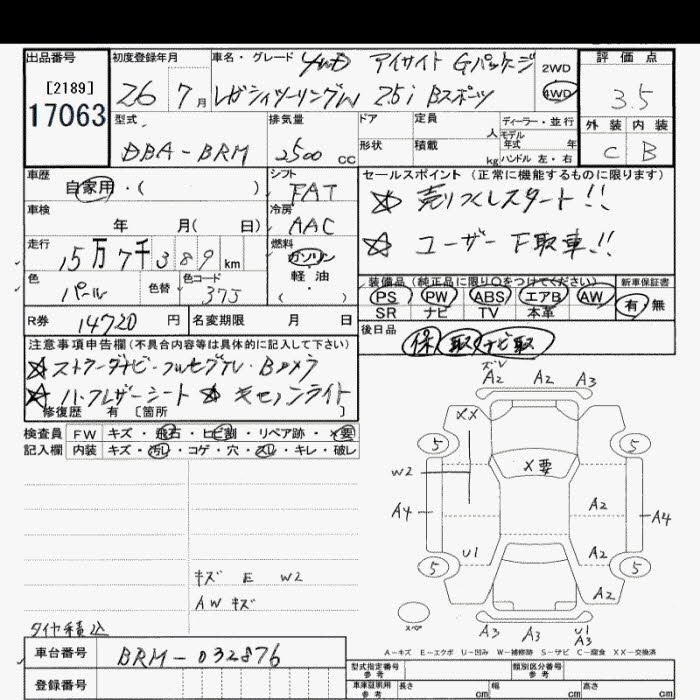 出品番号
[2189]
17063
初度登録年月
26年7月
車名・グレード
4WD アイサイト Gパッケージ
レガシィツーリングW 2.5i Bスポーツ
2WD
4WD
評価点
3.5
外装 内装
C B
型式
DBA-BRM
排気量
2500cc
ドア
形状
定員 人
積載 kg
ディーラー・並行
モデル年式 年
ハンドル 左・右
車歴
自家用・( )
シフト
FAT
セールスポイント(正常に機能するものに限ります)
☆ 売りつくしスタート!!
☆ ユーザー下取車!!
車検
年 月( 日)
冷房
AAC
走行
15万7千389km
燃料
ガソリン
軽油
( ・ )
色
パール
色替
色コード
375
装備品(純正品に限り○をつけてください)
PS PW ABS エアB AW
SR ナビ TV 本革
新車保証書
有・無
R券 14720円
名変期限 月 日
後日品
保 取 ナビ取
注意事項申告欄(不具合内容等は具体的に記入して下さい)
☆ストラーダナビ・フルセグTV・Bカメラ
☆ハーフレザーシート ☆キセノンライト
修復歴 有 [箇所 ]
検査員記入欄
FW キズ・飛石・ヒビ割・リペア跡・X要
内装 キズ・汚レ・コゲ・穴・スレ・キレ・破レ
キズ E W2
AW キズ
タイヤ積込
ズレ
A2 A2 A3
XX
5 5
X要
W2
A4
A2
A4
U1
A2
5 5
A2
スペア
A3 A3 U1
A3
A…キズ E…エクボ U…凹み W…補修跡 S…サビ C…腐食 XX…交換済
車台番号 BRM-032876
登録番号
型式指定番号
参考
類別区分番号
参考
車庫証明用
参考
長さ cm
幅 cm
高さ cm